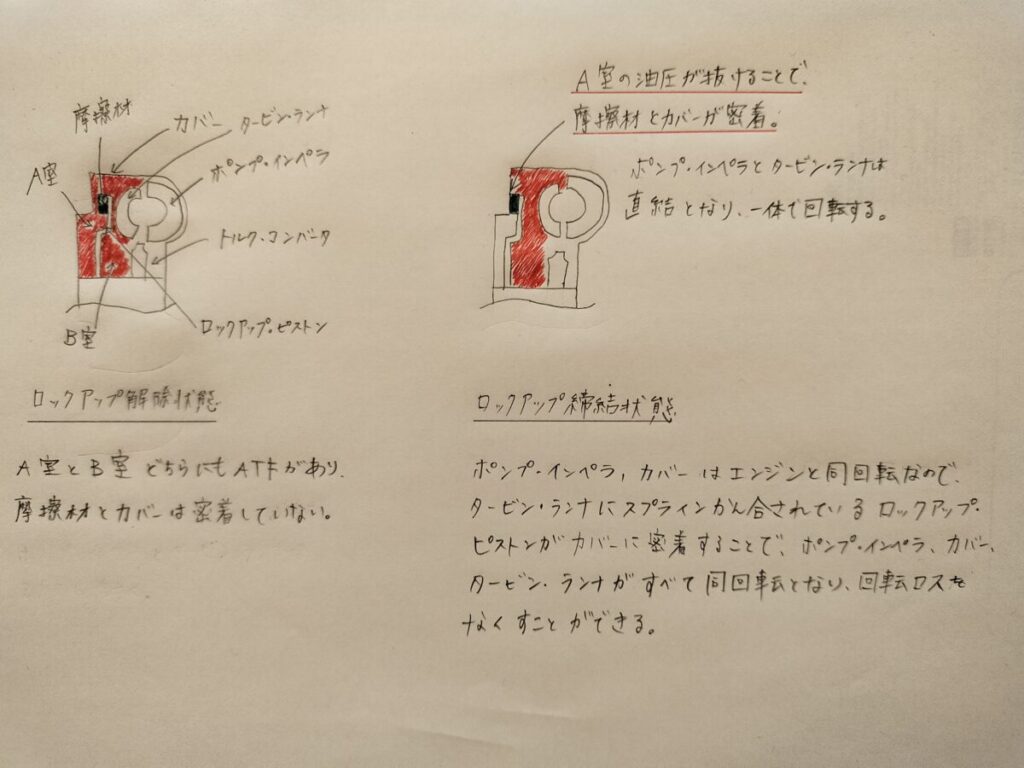 摩擦材
カバー
タービン・ランナ
A室
ポンプ・インペラ
トルク・コンバータ
ロックアップ・ピストン
B室
ロックアップ解除状態
A室とB室どちらにもATFがあり、
摩擦材とカバーは密着していない。
A室の油圧が抜けることで、
摩擦材とカバーが密着。
ポンプ・インペラとタービン・ランナは
直結となり、一体で回転する。
ロックアップ締結状態
ポンプ・インペラ,カバーはエンジンと同回転なので、
タービン・ランナにスプラインかん合されているロックアップ・
ピストンがカバーに密着することで、ポンプ・インペラ、カバー、
タービン・ランナがすべて同回転となり、回転ロスを
なくすことができる。